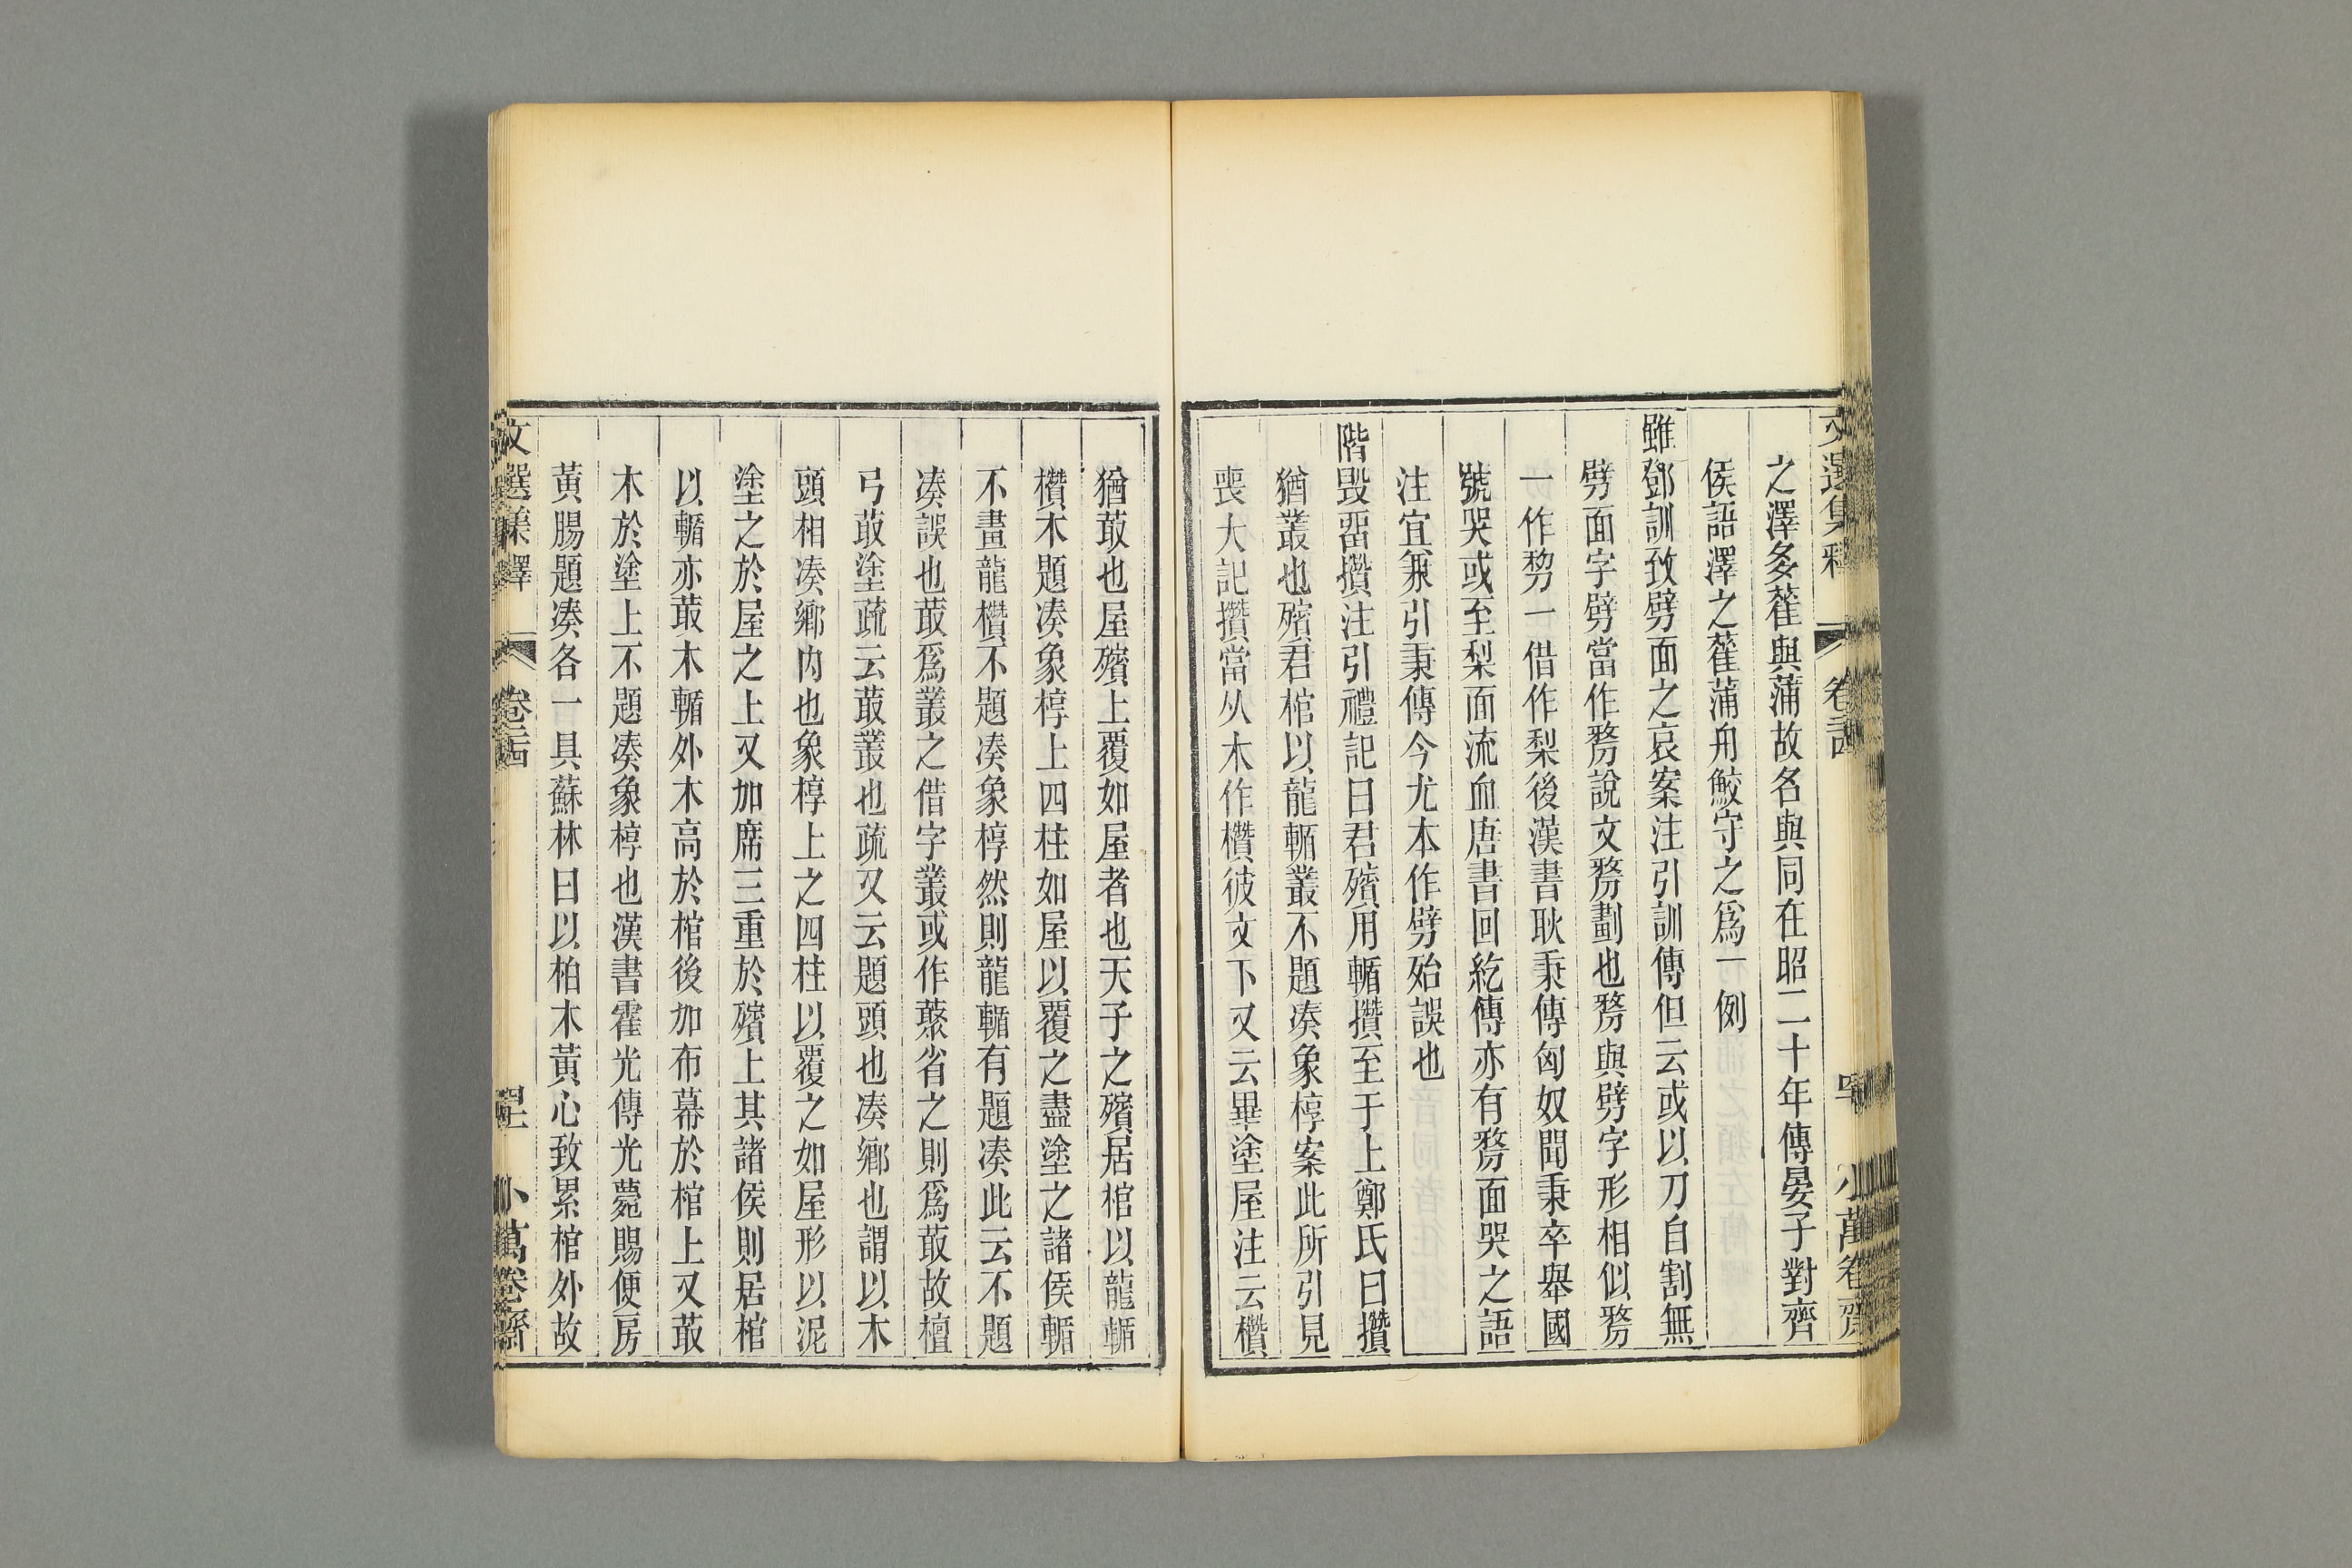 文選集釋 卷二十四 小萬卷齋
之澤多萑與蒲故名與同在昭二十年傳晏子對齊
侯語澤之萑蒲舟鮫守之爲一例
雖鄧訓致劈面之哀案注引訓傳但云或以刀自割無
劈面字劈當作剺說文剺劃也剺與劈字形相似剺
一作㓯一借作梨後漢書耿秉傳匈奴聞秉卒舉國
號哭或至梨面流血唐書回紇傳亦有剺面哭之語
注宜兼引秉傳今尤本作劈殆誤也
階毀畱攢注引禮記曰君殯用輴攢至于上鄭氏曰攢
猶叢也殯君棺以龍輴叢不題湊象椁案此所引見
喪大記攢當从木作欑彼文下又云畢塗屋注云欑
猶菆也屋殯上覆如屋者也天子之殯居棺以龍輴
欑木題湊象椁上四柱如屋以覆之盡塗之諸侯輴
不畫龍欑不題湊象椁然則龍輴有題湊此云不題
湊誤也菆爲叢之借字叢或作藂省之則爲菆故檀
弓菆塗疏云菆叢也疏又云題頭也湊鄉也謂以木
頭相湊鄉內也象椁上之四柱以覆之如屋形以泥
塗之於屋之上又加席三重於殯上其諸侯則居棺
以輴亦菆木輴外木高於棺後加布幕於棺上又菆
木於塗上不題湊象椁也漢書霍光傳光薨賜便房
黃腸題湊各一具蘇林曰以柏木黃心致累棺外故
文選集釋 卷二十四 小萬卷齋